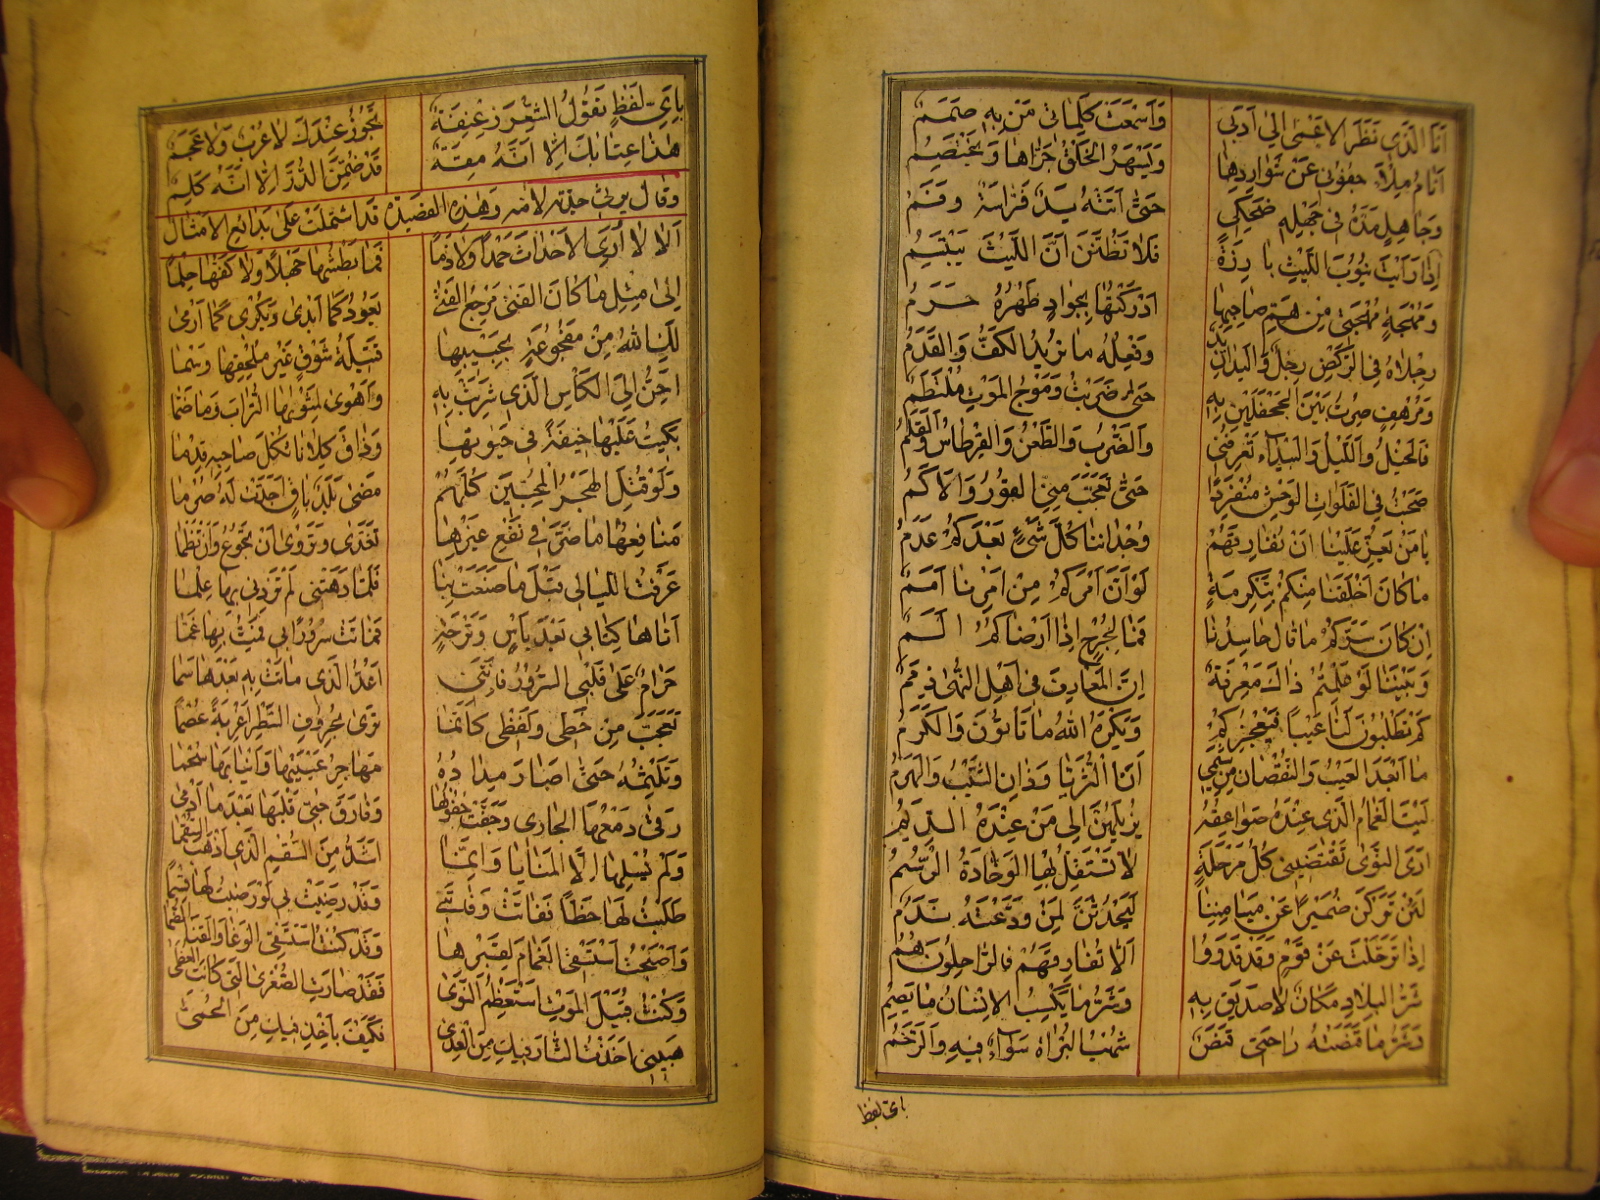 أَنَا الَّذِي نَظَرَ الأَعْمَى إِلَى أَدَبِي وَأَسْمَعَتْ كَلِمَاتِي مَنْ بِهِ صَمَمُ
أَنَامُ مِلْأَ جُفُونِي عَنْ شَوَارِدِهَا وَيَسْهَرُ الْخَلْقُ جَرَّاهَا وَيَخْتَصِمُ
وَجَاهِلٍ مَدَّهُ فِي جَهْلِهِ ضَحِكِي حَتَّى أَتَتْهُ يَدٌ فَرَّاسَةٌ وَفَمُ
إِذَا رَأَيْتَ نُيُوبَ اللَّيْثِ بَارِزَةً فَلَا تَظُنَّنَّ أَنَّ اللَّيْثَ يَبْتَسِمُ
وَمُهْجَةٍ مُهْجَتِي مِنْ هَمِّ صَاحِبِهَا أَدْرَكْتُهَا بِجَوَادٍ ظَهْرُهُ حَرَمُ
رِجْلَاهُ فِي الرَّكْضِ رِجْلٌ وَالْيَدَانِ يَدٌ وَفِعْلُهُ مَا تُرِيدُ الْكَفُّ وَالْقَدَمُ
وَمُرْهَفٍ سِرْتُ بَيْنَ الْجَحْفَلَيْنِ بِهِ حَتَّى ضَرَبْتُ وَمَوْجُ الْمَوْتِ مُلْتَطِمُ
فَالْخَيْلُ وَاللَّيْلُ وَالْبَيْدَاءُ تَعْرِفُنِي وَالضَّرْبُ وَالطَّعْنُ وَالْقِرْطَاسُ وَالْقَلَمُ
صَحِبْتُ فِي الْفَلَوَاتِ الْوَحْشَ مُنْفَرِدًا حَتَّى تَعَجَّبَ مِنِّي الْقُورُ وَالْأَكَمُ
يَا مَنْ يَعِزُّ عَلَيْنَا أَنْ نُفَارِقَهُمْ وُجْدَانُنَا كُلَّ شَيْءٍ بَعْدَكُمْ عَدَمُ
مَا كَانَ أَخْلَقَنَا مِنْكُمْ بِتَكْرِمَةٍ لَوْ أَنَّ أَمْرَكُمُ مِنْ أَمْرِنَا أَمَمُ
إِنْ كَانَ سَرَّكُمُ مَا قَالَ حَاسِدُنَا فَمَا لِجُرْحٍ إِذَا أَرْضَاكُمُ أَلَمُ
وَبَيْنَنَا لَوْ عَلِمْتُمْ ذَاكَ مَعْرِفَةٌ إِنَّ الْمَعَارِفَ فِي أَهْلِ النُّهَى ذِمَمُ
كَمْ تَطْلُبُونَ لَنَا عَيْبًا فَيُعْجِزُكُمْ وَيَكْرَهُ اللَّهُ مَا تَأْتُونَ وَالْكَرَمُ
مَا أَبْعَدَ الْعَيْبَ وَالنُّقْصَانَ مِنْ شِيَمِي أَنَا الثُّرَيَّا وَذَانِ الشَّيْبُ وَالْهَرَمُ
لَيْتَ الْغَمَامَ الَّذِي عِنْدَهُ صَوَاعِقُهُ يُزِيلُهُنَّ إِلَى مَنْ عِنْدَهُ الدِّيَمُ
أَرَى النَّوَى تَقْتَضِينِي كُلَّ مَرْحَلَةٍ لَا تَسْتَقِلُّ بِهَا الْوَخَّادَةُ الرُّسُمُ
لَئِنْ تَرَكْنَ ضُمَيْرًا عَنْ مَيَامِنِنَا لَيَحْدُثَنَّ لِمَنْ وَدَّعْتُهُ نَدَمُ
إِذَا تَرَحَّلْتَ عَنْ قَوْمٍ وَقَدْ قَدَرُوا أَلَّا تُفَارِقَهُمْ فَالرَّاحِلُونَ هُمُ
شَرُّ الْبِلَادِ مَكَانٌ لَا صَدِيقَ بِهِ وَشَرُّ مَا يَكْسِبُ الْإِنْسَانُ مَا يَصِمُ
وَشَرُّ مَا قَنَصَتْهُ رَاحَتِي قَنَصٌ شُهْبُ الْبُزَاةِ سَوَاءٌ فِيهِ وَالرَّخَمُ
بأي لفظ
بِأَيِّ لَفْظٍ تَقُولُ الشِّعْرَ زِعْنِفَةٌ تَجُوزُ عِنْدَكَ لَا عُرْبٌ وَلَا عَجَمُ
هَذَا عِتَابُكَ إِلَّا أَنَّهُ مِقَةٌ قَدْ ضُمِّنَ الدُّرَّ إِلَّا أَنَّهُ كَلِمُ
وقال يرثي جدته لامه وهذه القصيدة قد اشتملت على بدائع الامثال
أَلَا لَا أُرِي الْأَحْدَاثَ حَمْدًا وَلَا ذَمًّا فَمَا بَطْشُهَا جَهْلًا وَلَا كَفُّهَا حِلْمًا
إِلَى مِثْلِ مَا كَانَ الْفَتَى مَرْجِعُ الْفَتَى يَعُودُ كَمَا أُبْدِي وَيُكْرِي كَمَا أَرْمَى
لَكِ اللَّهُ مِنْ مَفْجُوعَةٍ بِحَبِيبِهَا قَتِيلَةُ شَوْقٍ غَيْرِ مُلْحِقِهَا وَصْمَا
أَحِنُّ إِلَى الْكَأْسِ الَّذِي شَرِبَتْ بِهِ وَأَهْوَى لِمَثْوَاهَا التُّرَابَ وَمَا ضَمَّا
بَكَيْتُ عَلَيْهَا خِيفَةً فِي حَيَوتِهَا وَذَاقَ كِلَانَا ثُكْلَ صَاحِبِهِ قِدْمَا
وَلَوْ قَتَلَ الْهَجْرُ الْمُحِبِّينَ كُلَّهُمْ مَضَى بَلَدٌ بَاقٍ أَجَدَّتْ لَهُ صَرْمَا
مَنَافِعُهَا مَا ضَرَّ فِي نَفْعِ غَيْرِهَا تَغَذَّى وَتَرْوَى أَنْ تَجُوعَ وَأَنْ تَظْمَا
عَرَفْتُ اللَّيَالِي قَبْلَ مَا صَنَعَتْ بِنَا فَلَمَّا دَهَتْنِي لَمْ تَزِدْنِي بِهَا عِلْمَا
أَتَاهَا كِتَابِي بَعْدَ يَأْسٍ وَتَرْحَةٍ فَمَاتَتْ سُرُورًا بِي فَمِتُّ بِهَا غَمَّا
حَرَامٌ عَلَى قَلْبِي السُّرُورُ فَإِنَّنِي أَعُدُّ الَّذِي مَاتَتْ بِهِ بَعْدَهَا سُمَّا
تَعَجَّبَ مِنْ خَطِّي وَلَفْظِي كَأَنَّمَا تَرَى بِحُرُوفِ السَّطْرِ أَغْرِبَةً عُصْمَا
وَتَلْثِمُهُ حَتَّى أَصَارَ مِدَادُهُ مَهَاجِرَ عَيْنَيْهَا وَأَنْيَابَهَا سُحْمَا
رَقَى دَمْعُهَا الْجَارِي وَجَفَّتْ جُفُونُهَا وَفَارَقَ حُبِّي قَلْبَهَا بَعْدَمَا أَدْمَى
وَلَمْ يُسْلِهَا إِلَّا الْمَنَايَا وَإِنَّمَا أَشَدُّ مِنَ السُّقْمِ الَّذِي أَذْهَبَ السُّقْمَا
طَلَبْتُ لَهَا حَظًّا فَفَاتَتْ وَفَاتَنِي وَقَدْ رَضِيَتْ بِي لَوْ رَضِيتُ لَهَا قِسْمَا
وَأَصْبَحْتُ أَسْتَسْقِي الْغَمَامَ لِقَبْرِهَا وَقَدْ كُنْتُ أَسْتَسْقِي الْوَغَا وَالْقَنَا الصُّمَّا
وَكُنْتُ قُبَيْلَ الْمَوْتِ أَسْتَعْظِمُ النَّوَى فَقَدْ صَارَتِ الصُّغْرَى الَّتِي كَانَتِ الْعُظْمَى
هَبِينِي أَخَذْتُ الثَّارَ فِيكِ مِنَ الْعِدَى فَكَيْفَ بِأَخْذِ فِيكِ مِنَ الْحُمَّى